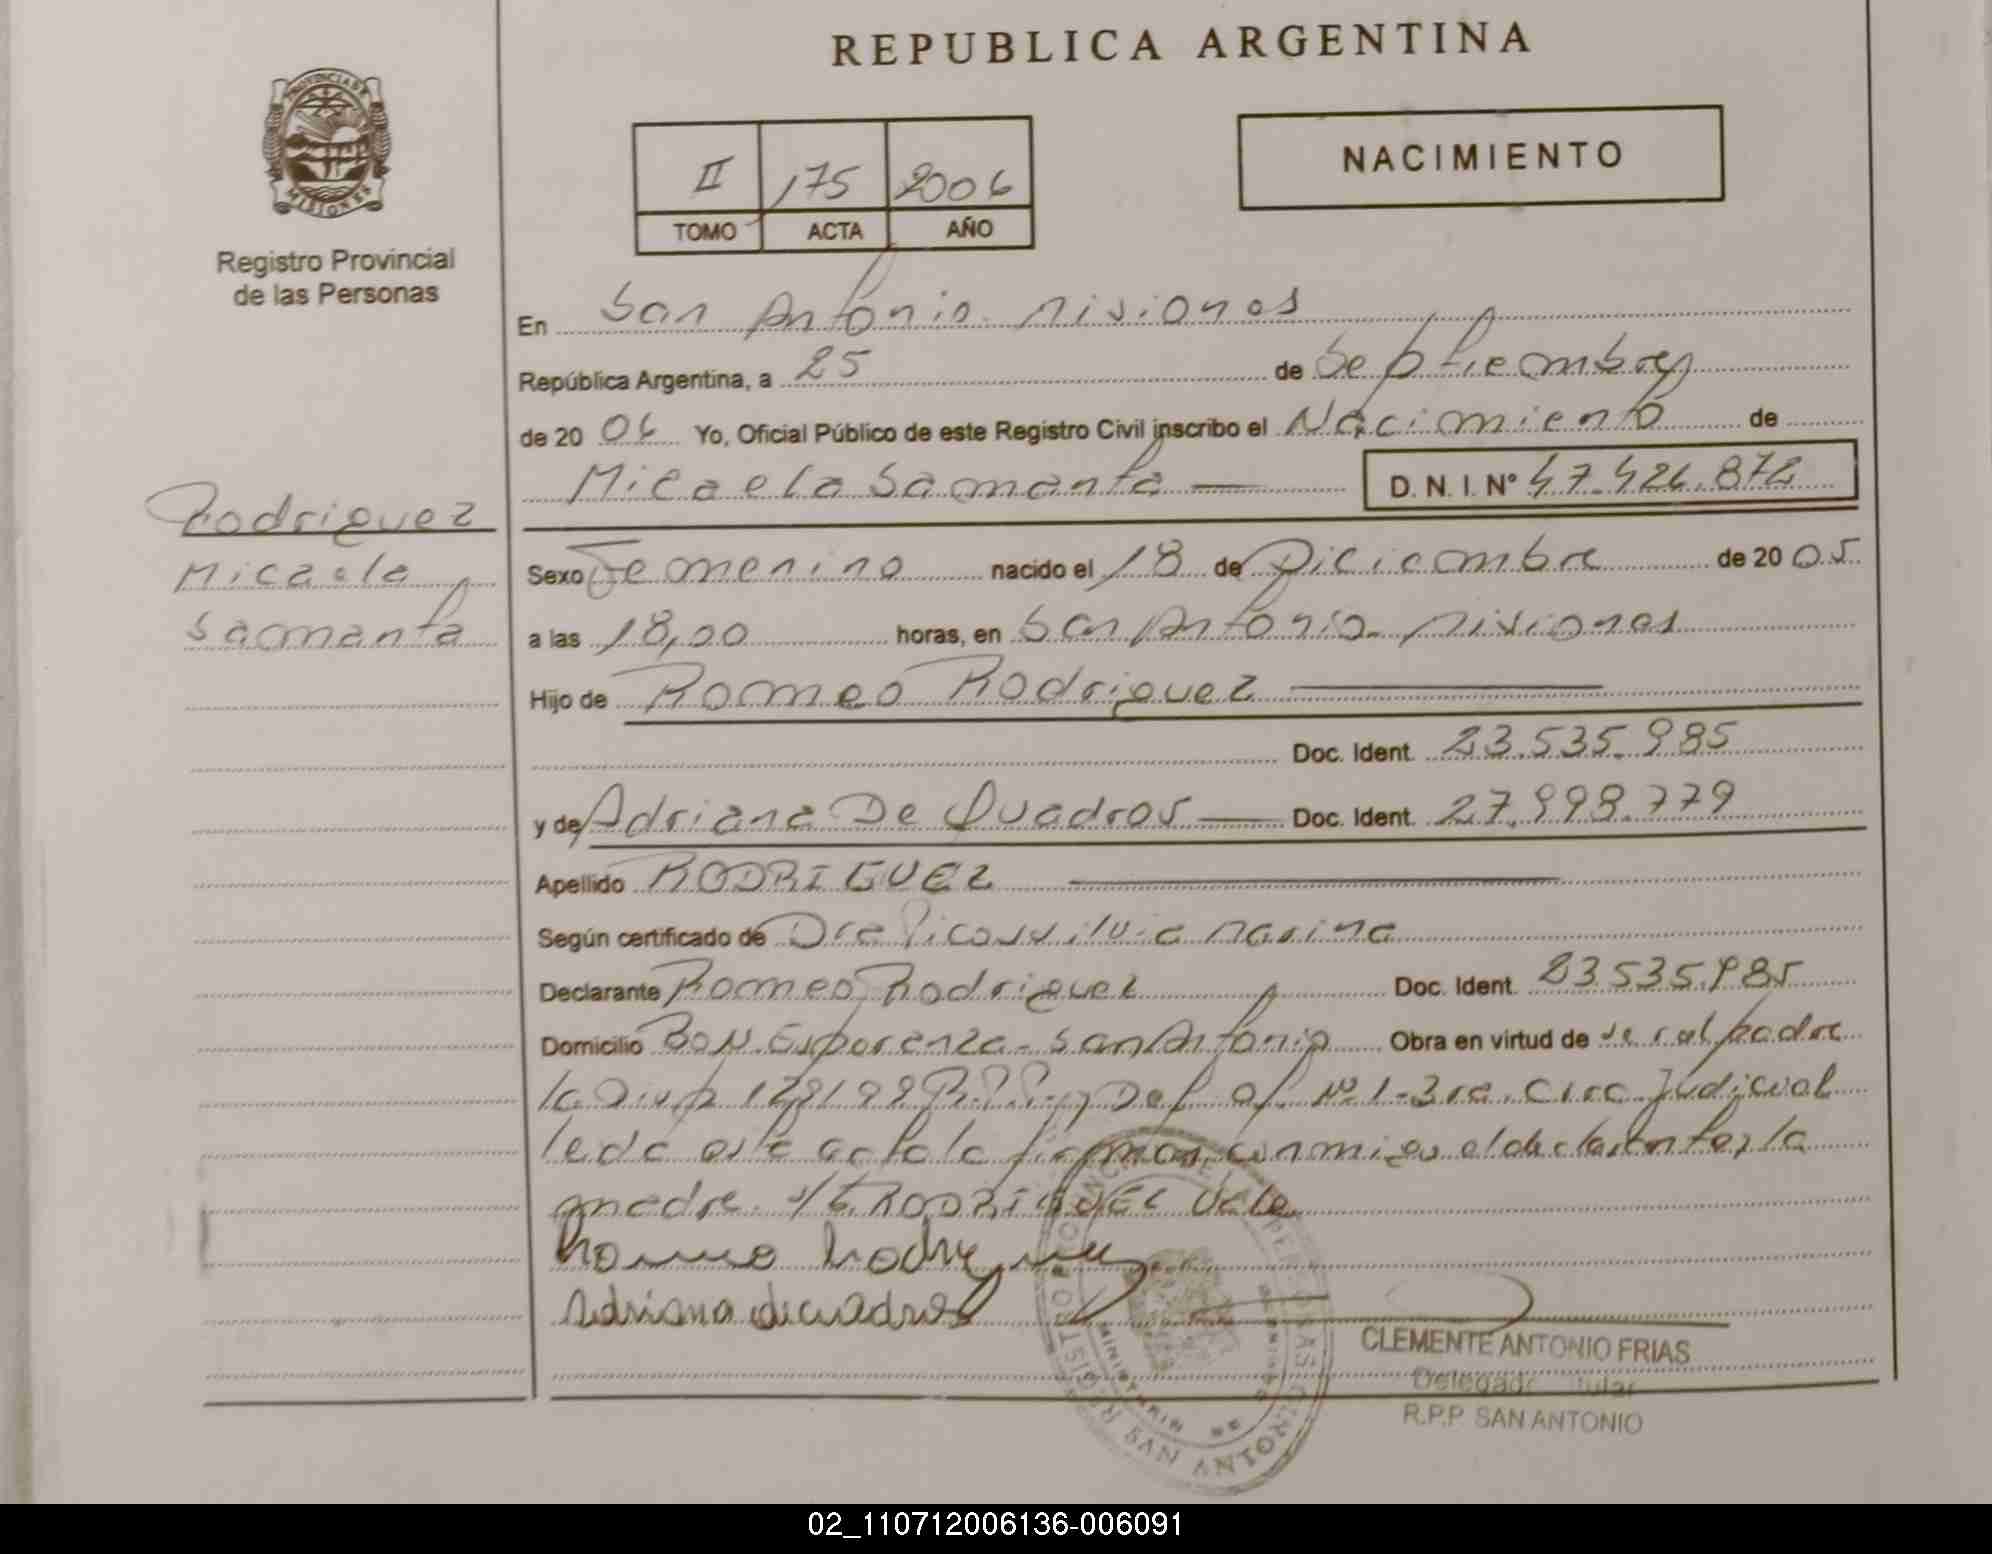 REPUBLICA ARGENTINA
PROVINCIA DE
MISIONES
Registro Provincial
de las Personas
II 175 2006
TOMO ACTA AÑO
NACIMIENTO
En San Antonio Misiones
República Argentina, a 25 de Septiembre
de 20 06 Yo, Oficial Público de este Registro Civil inscribo el Nacimiento de
Micaela Samanta D. N. I. Nº 47.426.872
Rodriguez
Micaela
Samanta
Sexo Femenino nacido el 18 de Diciembre de 20 05
a las 18,00 horas, en San Antonio Misiones
Hijo de Romeo Rodriguez
Doc. Ident. 23.535.985
y de Adriana De Quadros Doc. Ident. 27.998.779
Apellido RODRIGUEZ
Según certificado de Dra Picoss Silvia Marina
Declarante Romeo Rodriguez Doc. Ident. 23.535.985
Domicilio Bo N. Esperanza - San Antonio Obra en virtud de ser el padre
la Disp 128/99 R.P.P. y Def of. Nº 1 - 3ra. Circ Judicial
leda este acta la firman conmigo el declarante y la
madre. RODRIGUEZ Vale
Romeo Rodriguez
Adriana decuadros
CLEMENTE ANTONIO FRIAS
Delegado Titular
R.P.P SAN ANTONIO
REGISTRO PROVINCIAL DE LAS PERSONAS
SAN ANTONIO
02_110712006136-006091